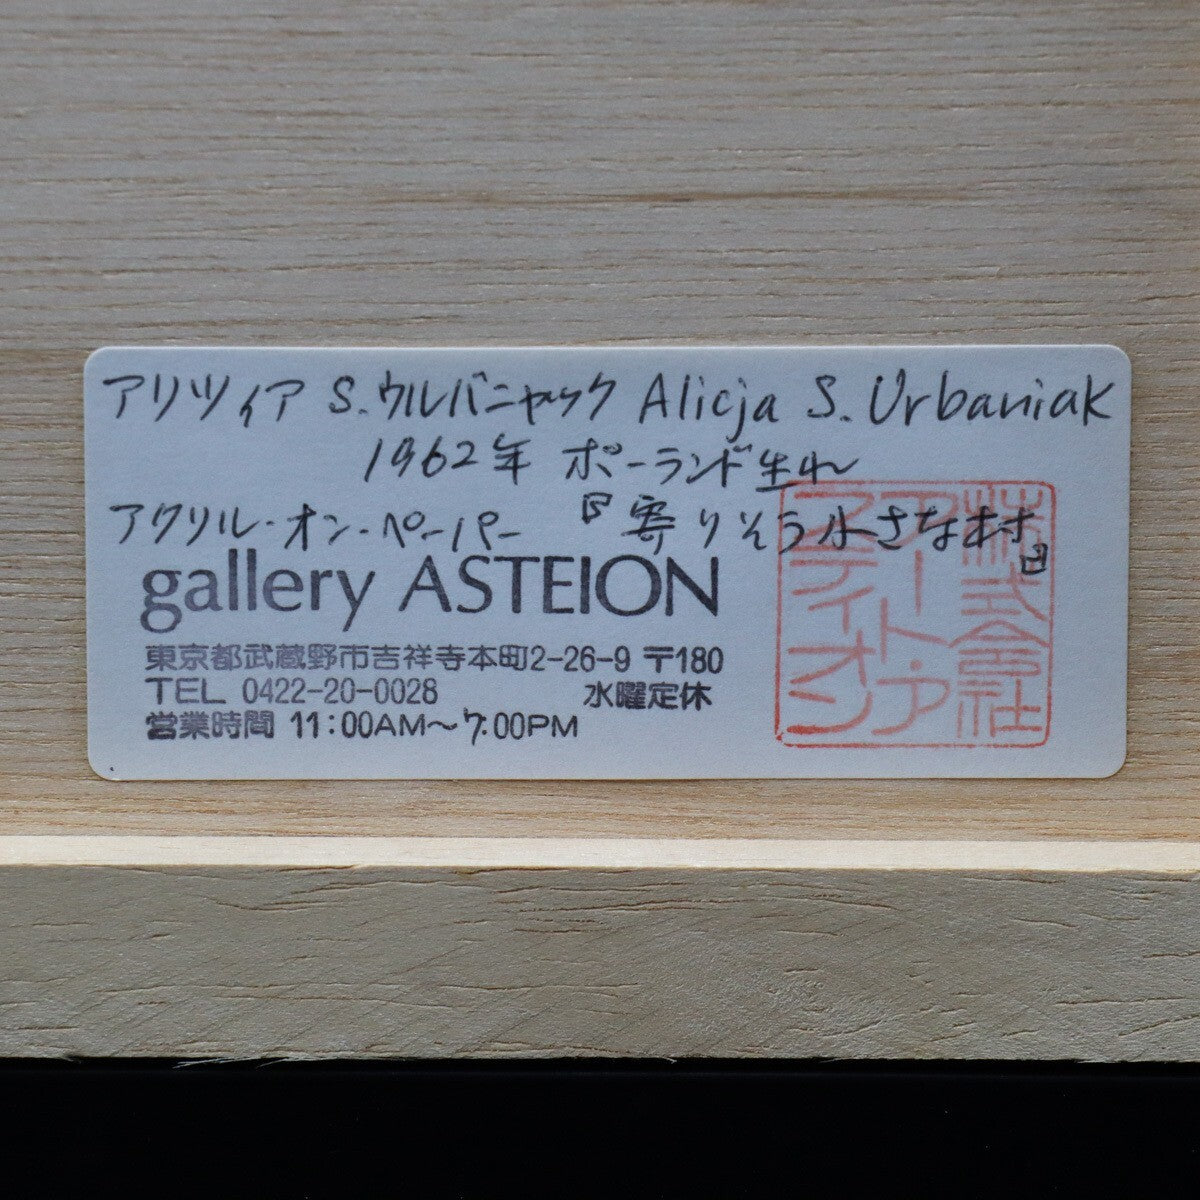 アリツィア S.ウルバニャック Alicja S. Urbaniak
1962年 ポーランド生れ
アクリル・オン・ペーパー 『寄りそう小さな村』
gallery ASTEION
東京都武蔵野市吉祥寺本町2-26-9 〒180
TEL 0422-20-0028 水曜定休
営業時間 11:00AM〜7:00PM
株式会社
アート・ア
スティオン